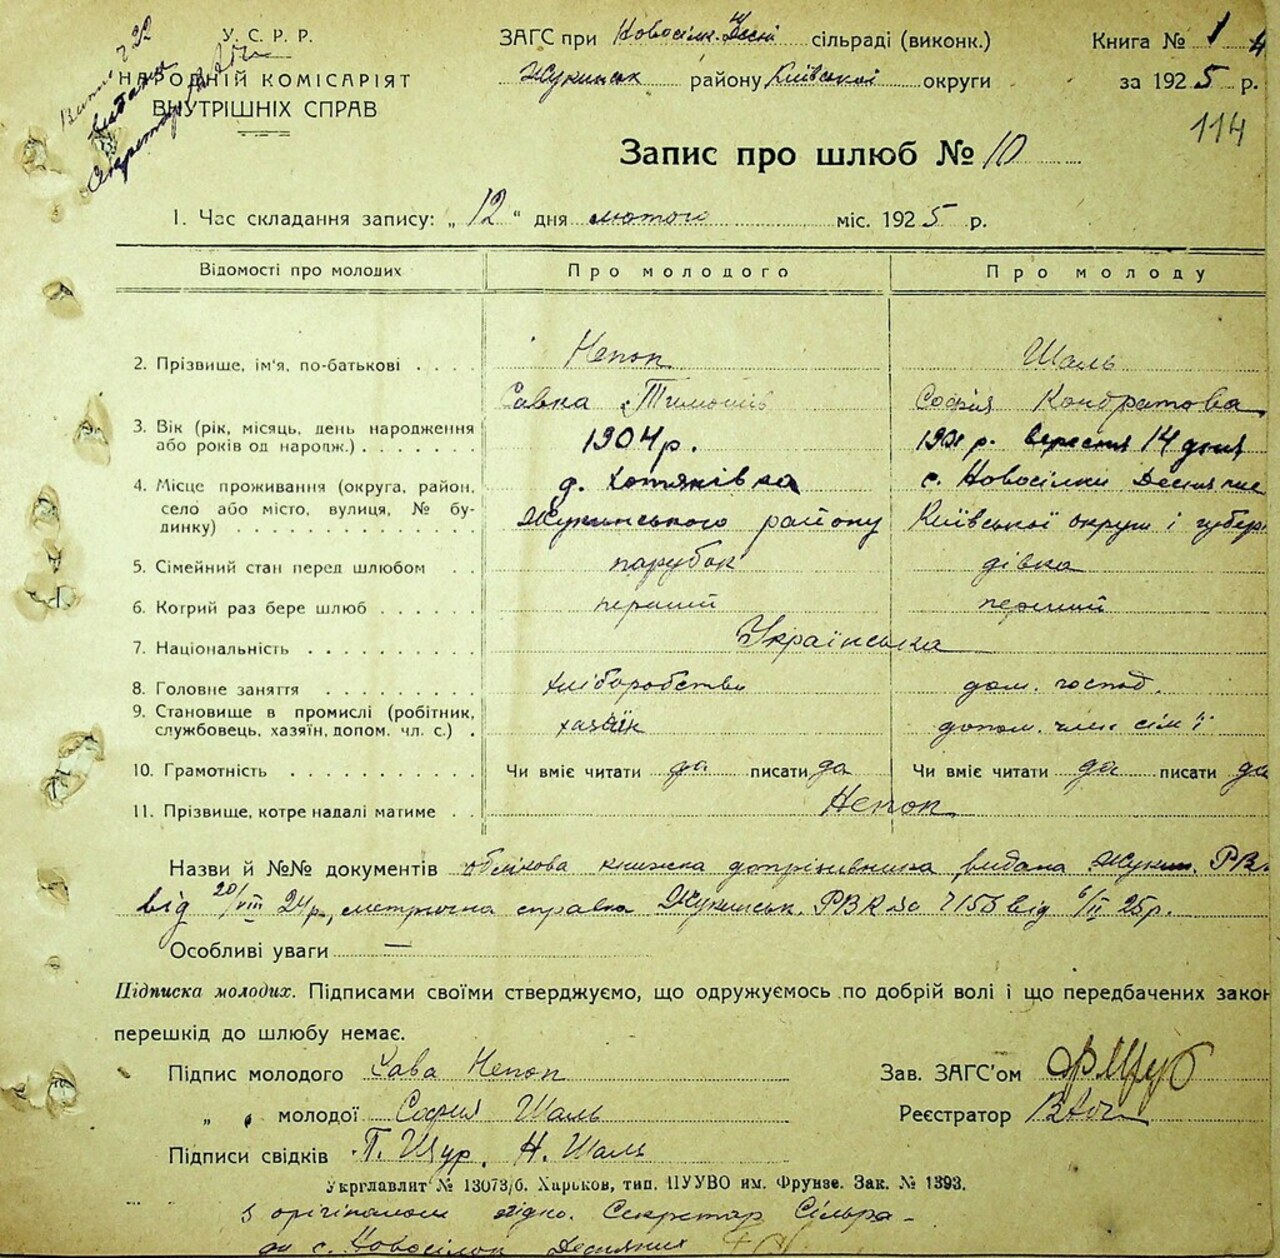 У. С. Р. Р.
НАРОДНІЙ КОМІСАРІЯТ
ВНУТРІШНІХ СПРАВ
видано
Секретар
ЗАГС при Новосілк. Десн сільраді (виконк.)
Жукинськ району Київської округи
Книга № 1
за 1925 р.
114
Запис про шлюб № 10
1. Час складання запису: „ 12 “ дня лютого міс. 1925 р.
Відомості про молодих Про молодого Про молоду
2. Прізвище, ім'я, по-батькові . . . . Непоп Шаль
Савка Тимошів София Кондратова
3. Вік (рік, місяць, день народження або років од народж.) . . . . . . . 1904 р. 1901 р. вересня 14 дня
4. Місце проживання (округа, район, село або місто, вулиця, № будинку) . . . . . . . . . . . . д. Хотянівка с. Новосілки Десняние
Жукинського району Київської округи і губер
5. Сімейний стан перед шлюбом . . парубок дівка
6. Котрий раз бере шлюб . . . . . . перший перший
7. Національність . . . . . . . . . . Українська
8. Головне заняття . . . . . . . . . хліборобство дом. господ.
9. Становище в промислі (робітник, службовець, хазяїн, допом. чл. с.) . хазяїн допом. член сім'ї
10. Грамотність . . . . . . . . . . . Чи вміє читати да писати да Чи вміє читати да писати да
11. Прізвище, котре надалі матиме . . Непоп
Назви й №№ документів облікова книжка допрізивника видана Жукин. РВ
від 20/VIII 24 р., метрична справка Жукинськ. РВК за ч 155 від 6/II 25 р.
Особливі уваги —
Підписка молодих. Підписами своїми стверджуємо, що одружуємось по добрій волі і що передбачених закон
перешкід до шлюбу немає.
Підпис молодого Сава Непоп Зав. ЗАГС'ом
„ „ молодої София Шаль Реєстратор
Підписи свідків П. Щур. Н. Шаль
Укрглавліт № 13073/б. Харьков, тип. ПУУВО им. Фрунзе. Зак. № 1393.
з орігіналом згідно. Секретар Сільра-
ди с. Новосілок Десняних